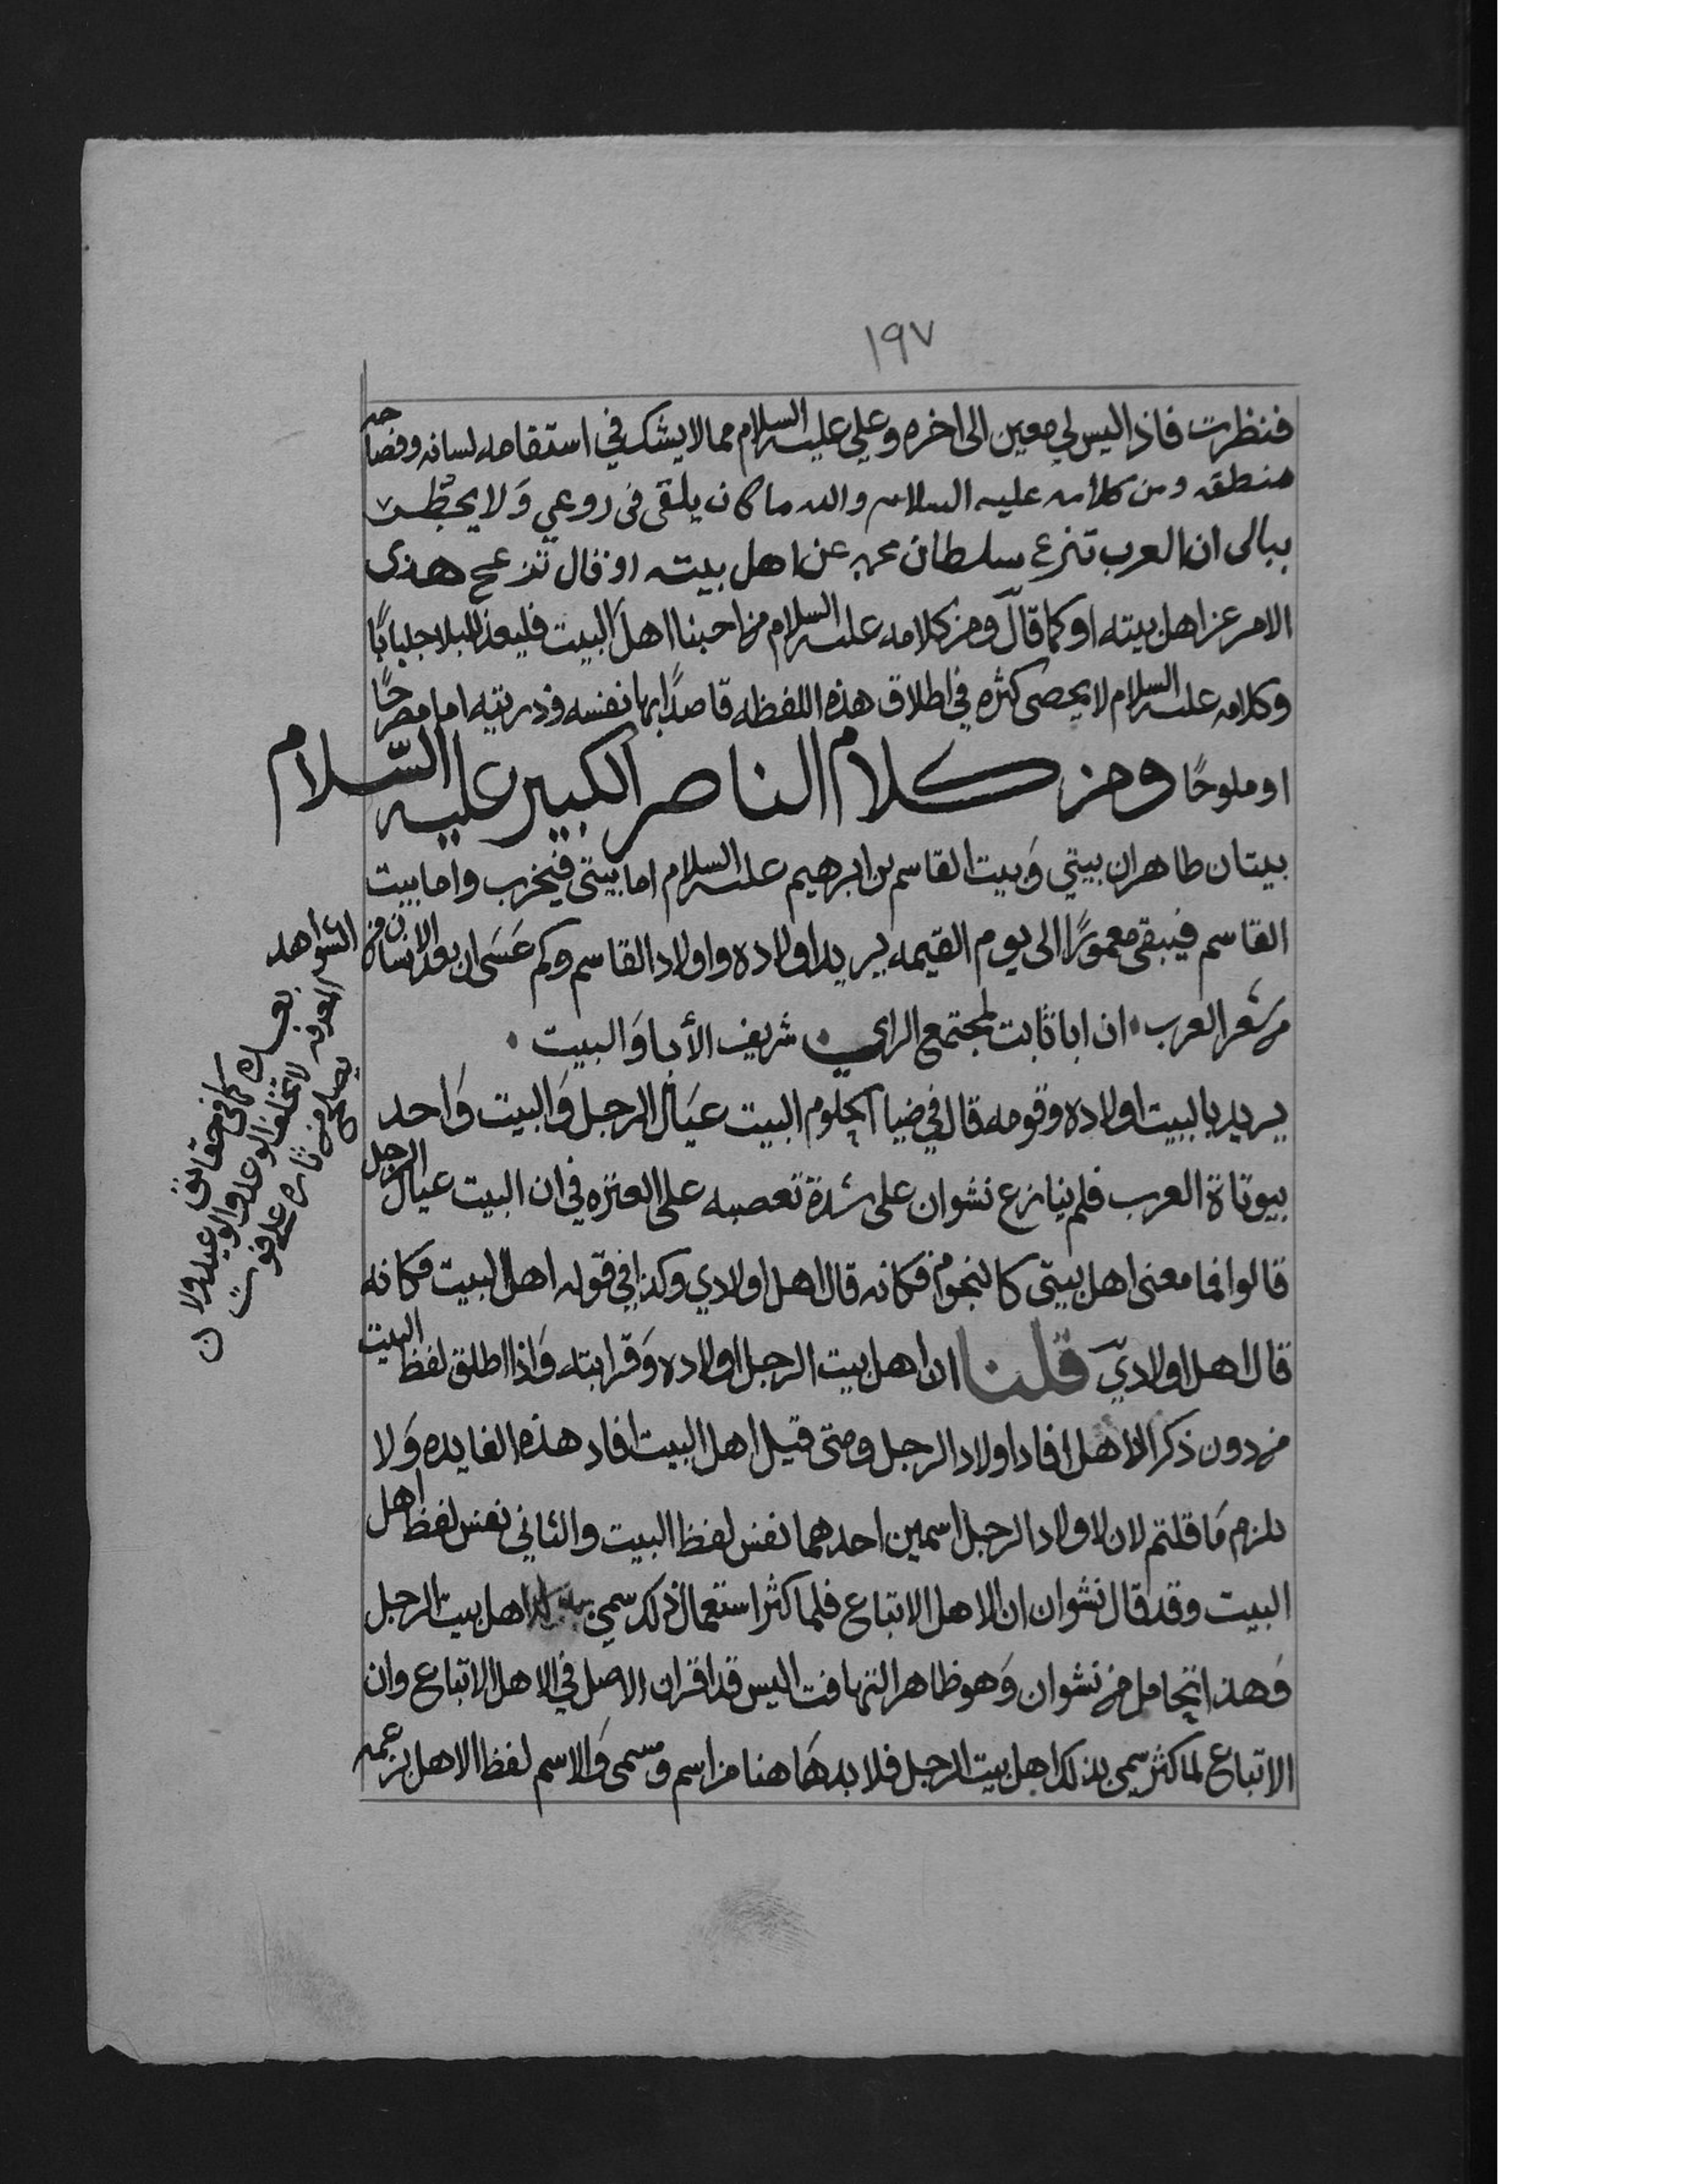 ١٩٧
فنظرت فاذا ليس لي معين الى اخره وعلي عليه السلام مما لا يشك في استقامه لسانه وفصاحه
منطقه ومن كلامه عليه السلام والله ما كان يلقى فى روعي وَلا يخطر
ببالى ان العرب تنزع سلطان محمد عن اهل بيته او قال تزعج هذى
الامر عن اهل بيته او كما قال ومن كلامه عليه السلام من احبنا اهل البيت فليعد للبلا جلبابًا
وكلامه عليه السلام لا يحصى كثره في اطلاق هذه اللفظه قاصدًا بها نفسه وذريته اما مصرحًا
او ملوحًا ومن كلام الناصر الكبير عليه السّلام
بيتان طاهران بيتي وَبيت القاسم بن ابرهيم عليه السلام اما بيتى فيخرب واما بيت
القاسم فيبقى معمورًا الى يوم القيمه يريد اولاده واولاد القاسم وكم عَسَى ان يعد الانسان من الشواهد
من شعر العرب ان ابا ثابت لمجتمع الراي شريف الأبا وَالبيت
يريد بالبيت اولاده وقومه قال في ضيا الحلوم البيت عيَال الرجل وَالبيت وَاحد
بيوتاة العرب فلم ينازع نشوان على شدة تعصبه على العتره في ان البيت عيال الرجل
قالوا فما معنى اهل بيتى كالنجوم فكانه قال اهل اولادي وكذا في قوله اهل البيت فكانه
قال اهل اولادي قلنا ان اهل بيت الرجل اولاده وَقرابته وَاذا اطلق لفظ البيت
من دون ذكر الاهل افاد اولاد الرجل ومتى قيل اهل البيت افاد هذه الفايده وَلا
يلزم مَا قلتم لان لاولاد الرجل اسمين احدهما نفس لفظ البيت والثاني نفس لفظ اهل
البيت وقد قال نشوان ان الاهل الاتباع فلما كثر استعمال ذلك سمي اهل بيت الرجل
وَهذا تحامل من نشوان وَهو ظاهر التهافت اليس قد اقر ان الاصل في الاهل الاتباع وان
الاتباع لما كثر سمى بذلك اهل بيت الرجل فلا بد هَاهنا من اسم ومسمى وَالاسم لفظ الاهل بزعمه